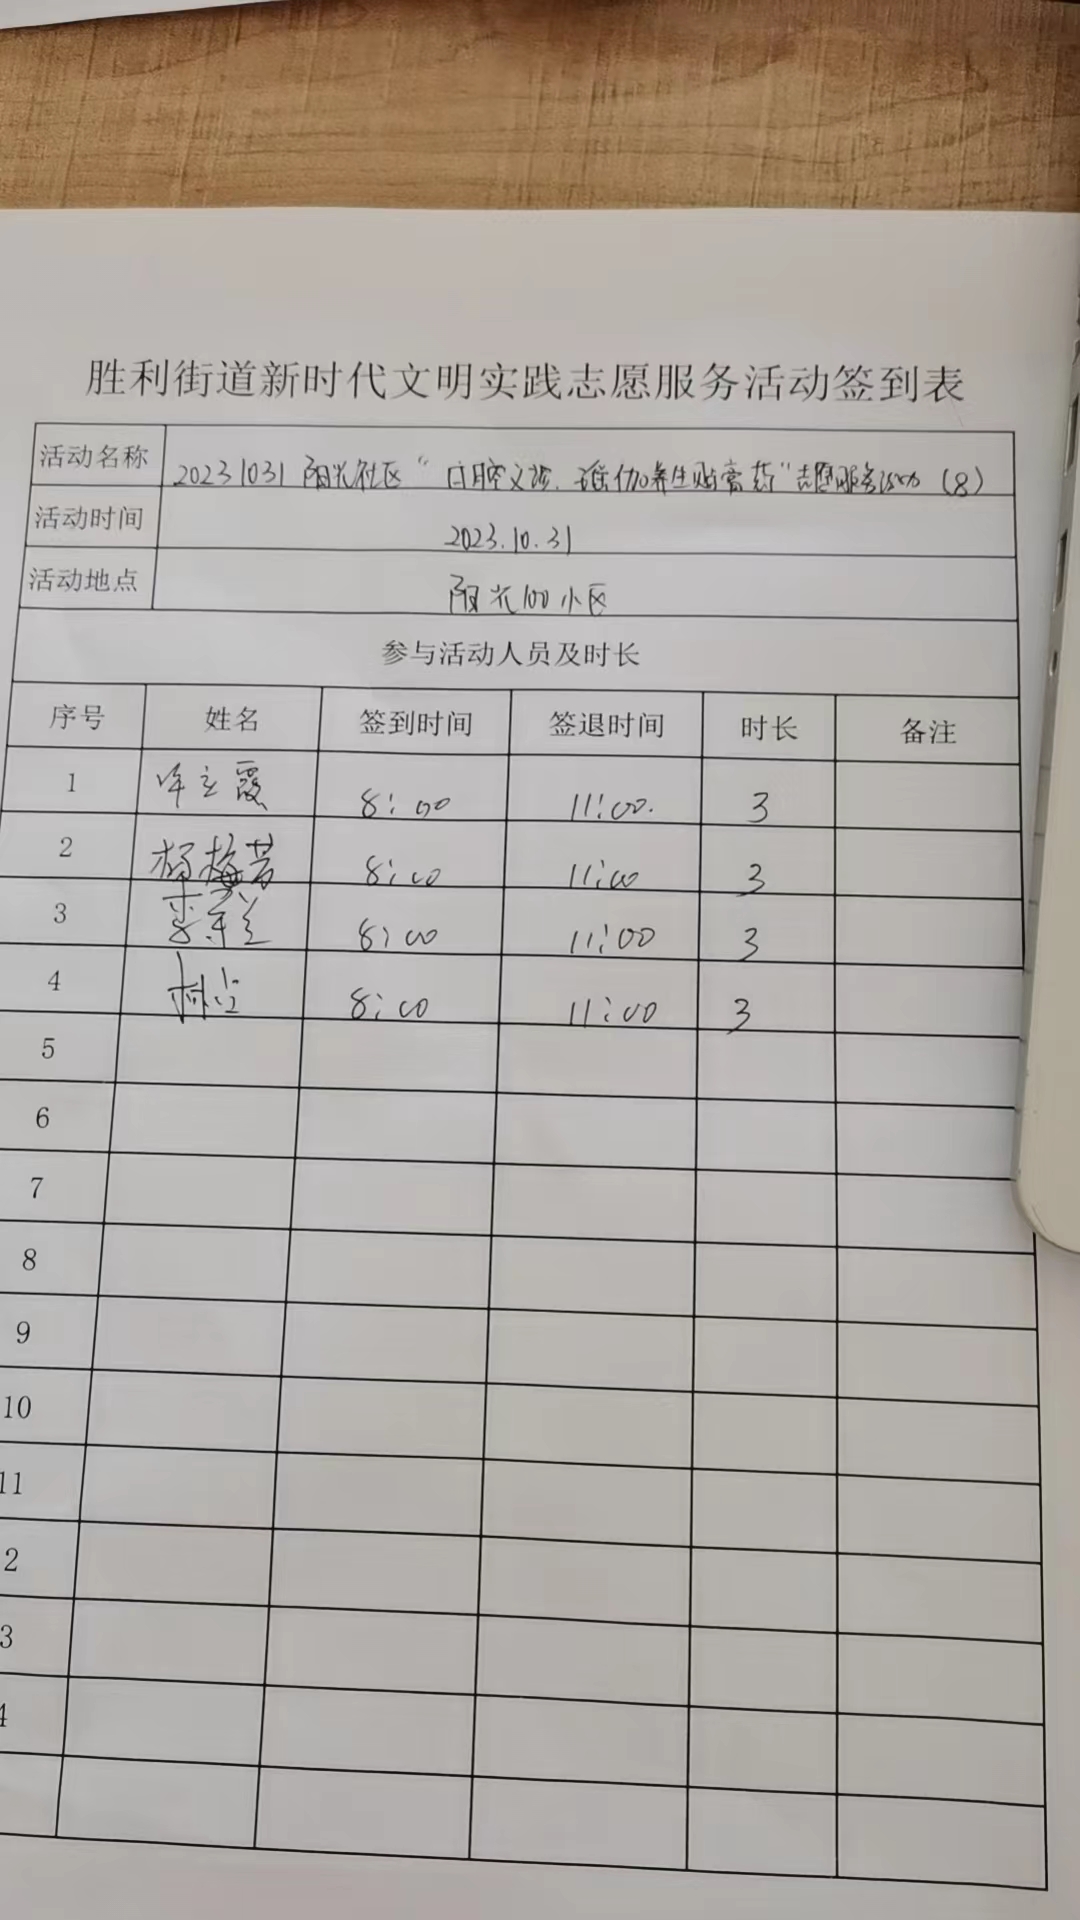 胜利街道新时代文明实践志愿服务活动签到表
活动名称 20231031 阳光社区“口腔义诊、瑜伽养生贴膏药”志愿服务活动（8）
活动时间 2023.10.31
活动地点 阳光100小区
参与活动人员及时长
序号 姓名 签到时间 签退时间 时长 备注
1 8:00 11:00. 3
2 杨梅芳 8:00 11:00 3
3 8:00 11:00 3
4 8:00 11:00 3
5
6
7
8
9
10
11
2
3
4